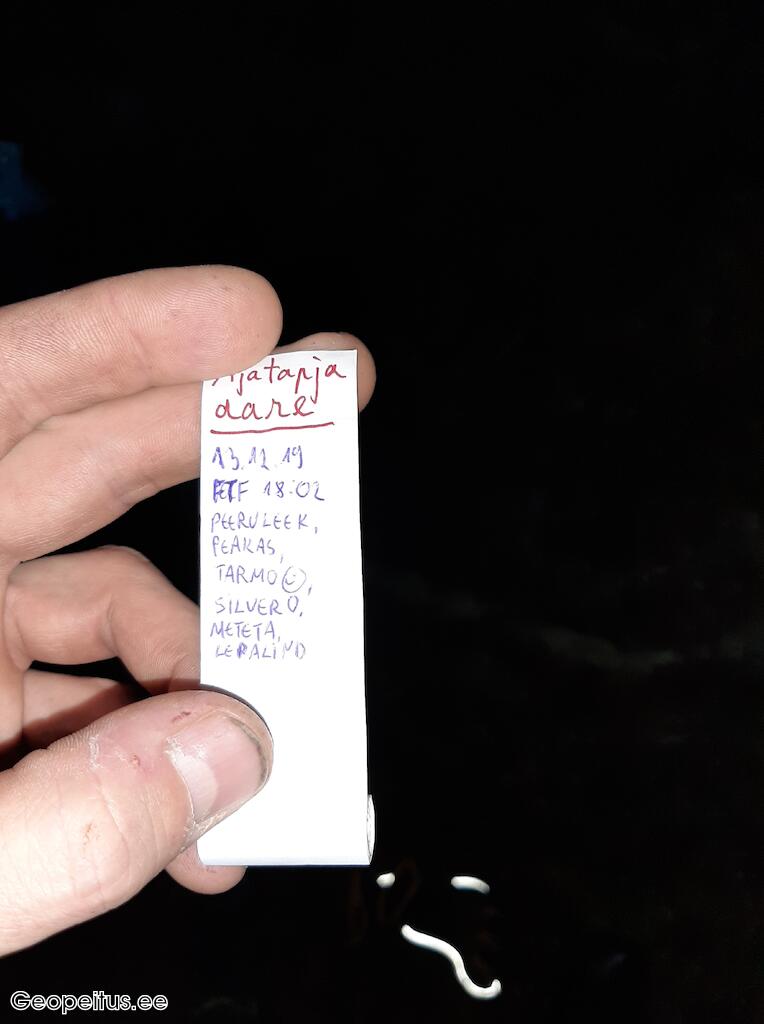 Ajatapja
dare
13.12.19
FTF 18:02
PEERULEEK,
PEAKAS,
TARMO,
SILVER O,
METETA,
LEPALIND
Geopeitus.ee